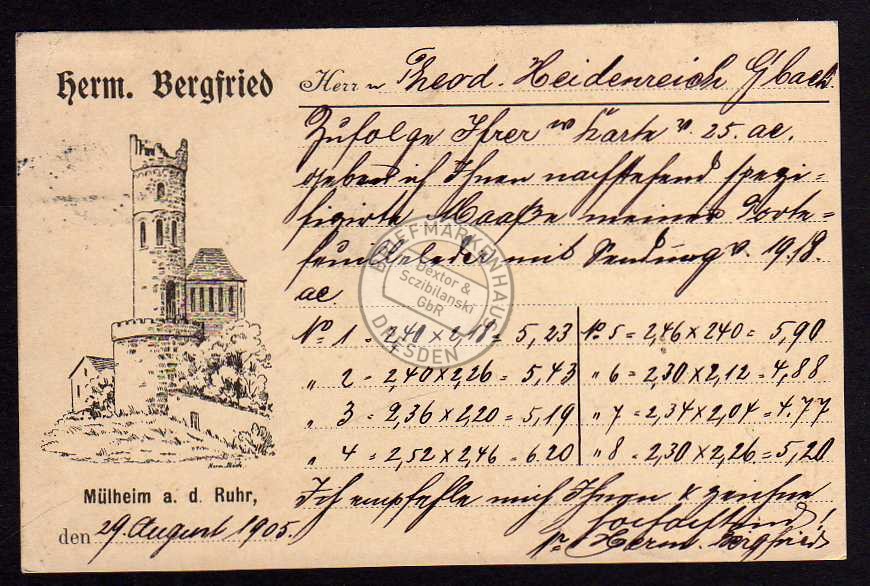 Herm. Bergfried
Herrn Theod. Heidenreich G'bach.
Zufolge Ihrer w Karte v. 25. ac.
geben ich Ihnen nachstehend spezi=
fizirte Maaße meiner Porte=
feuilleleder mit Sendung v. 19.18.
ac
No. 1 = 2,40 x 2,18 = 5,23
" 2 = 2,40 x 2,26 = 5,43
" 3 = 2,36 x 2,20 = 5,19
" 4 = 2,52 x 2,46 = 6.20
No. 5 = 2,46 x 2.40 = 5,90
" 6 = 2,30 x 2,12 = 4,88
" 7 = 2,34 x 2,04 = 4.77
" 8 = 2,30 x 2,26 = 5,20
Ich empfehle mich Ihnen & zeichne
hochachtend!
pr Herm. Bergfried
Mülheim a. d. Ruhr,
den 29. August 1905.
BRIEFMARKENHAUS
Dextor &
Sczibilanski
GbR
DRESDEN